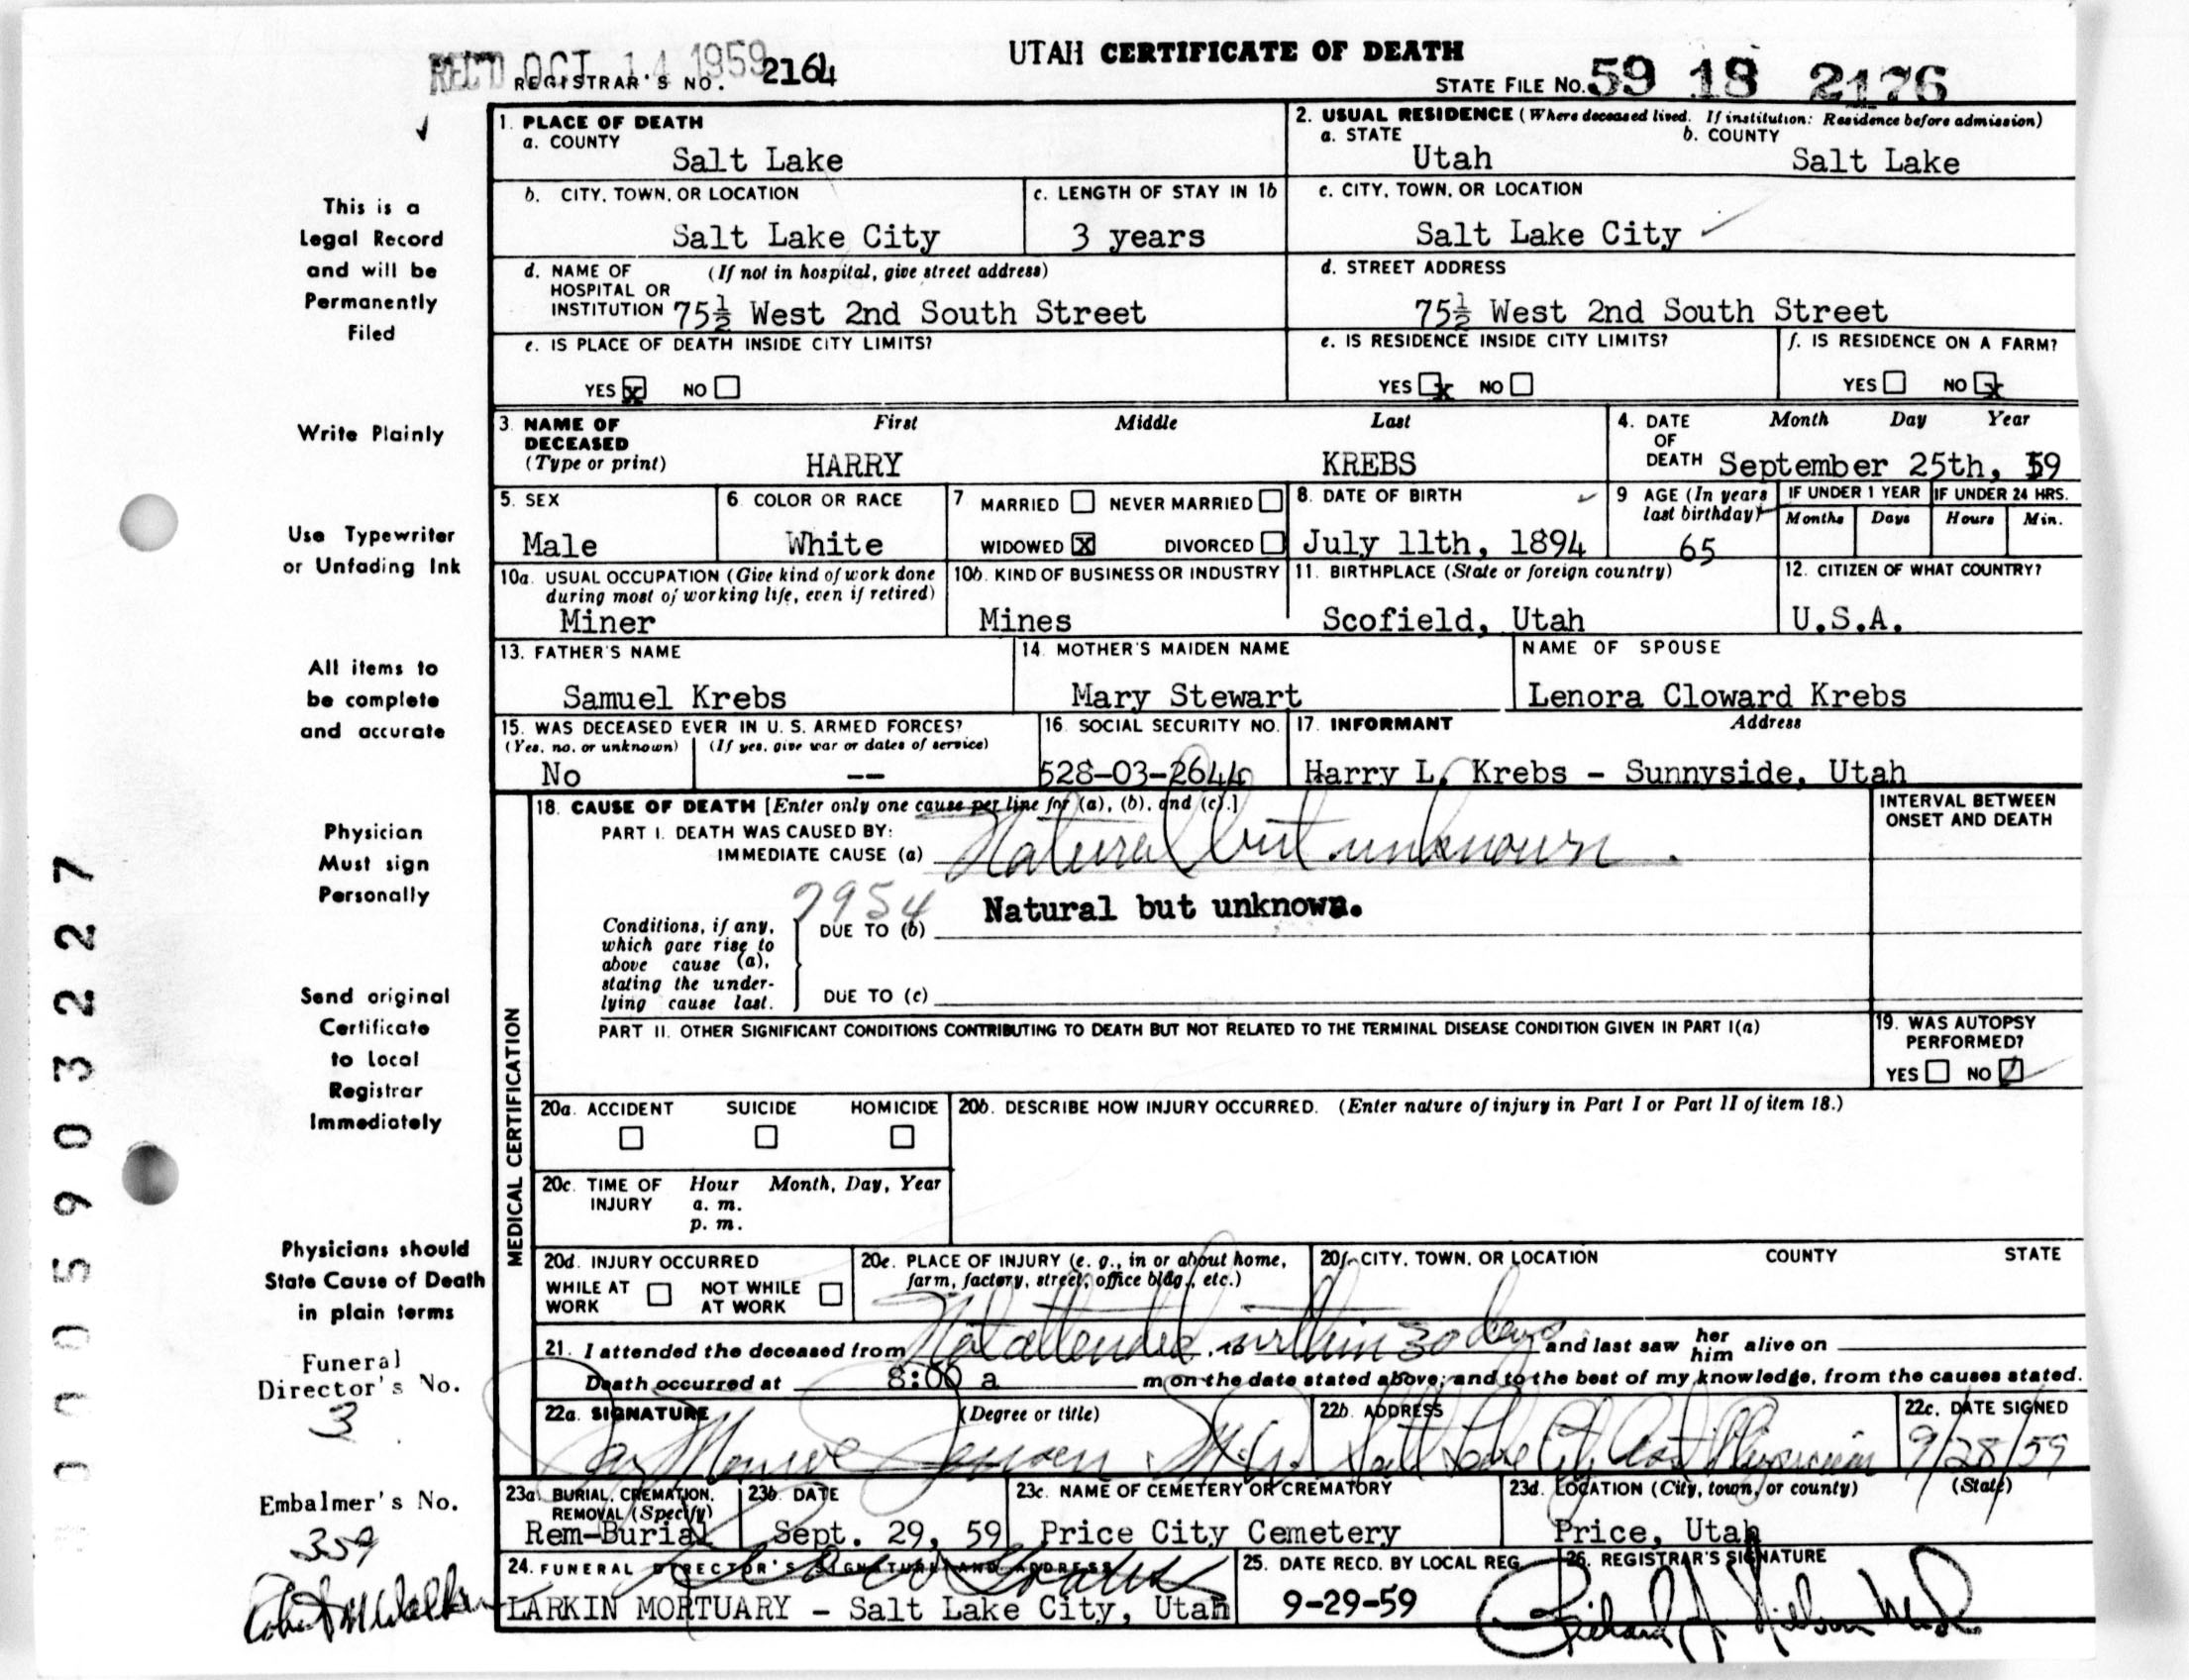 UTAH CERTIFICATE OF DEATH
REC'D OCT 14 1959
REGISTRAR'S NO. 2164
STATE FILE NO. 59 18 2176
1. PLACE OF DEATH
a. COUNTY
Salt Lake
2. USUAL RESIDENCE (Where deceased lived. If institution: Residence before admission)
a. STATE b. COUNTY
Utah Salt Lake
b. CITY, TOWN, OR LOCATION
Salt Lake City
c. LENGTH OF STAY IN 1b
3 years
c. CITY, TOWN, OR LOCATION
Salt Lake City
d. NAME OF (If not in hospital, give street address)
HOSPITAL OR
INSTITUTION 75½ West 2nd South Street
d. STREET ADDRESS
75½ West 2nd South Street
e. IS PLACE OF DEATH INSIDE CITY LIMITS?
YES x NO
e. IS RESIDENCE INSIDE CITY LIMITS?
YES x NO
f. IS RESIDENCE ON A FARM?
YES NO x
3. NAME OF DECEASED (Type or print)
First Middle Last
HARRY KREBS
4. DATE OF DEATH
Month Day Year
September 25th, 59
5. SEX
Male
6. COLOR OR RACE
White
7 MARRIED NEVER MARRIED
WIDOWED X DIVORCED
8. DATE OF BIRTH
July 11th, 1894
9 AGE (In years last birthday)
65
IF UNDER 1 YEAR IF UNDER 24 HRS.
Months Days Hours Min.
10a. USUAL OCCUPATION (Give kind of work done
during most of working life, even if retired)
Miner
10b. KIND OF BUSINESS OR INDUSTRY
Mines
11. BIRTHPLACE (State or foreign country)
Scofield, Utah
12. CITIZEN OF WHAT COUNTRY?
U.S.A.
13. FATHER'S NAME
Samuel Krebs
14. MOTHER'S MAIDEN NAME
Mary Stewart
NAME OF SPOUSE
Lenora Cloward Krebs
15. WAS DECEASED EVER IN U. S. ARMED FORCES?
(Yes, no, or unknown) (If yes, give war or dates of service)
No --
16. SOCIAL SECURITY NO.
528-03-2644
17. INFORMANT Address
Harry L. Krebs - Sunnyside, Utah
MEDICAL CERTIFICATION
18. CAUSE OF DEATH [Enter only one cause per line for (a), (b), and (c).]
INTERVAL BETWEEN
ONSET AND DEATH
PART I. DEATH WAS CAUSED BY:
IMMEDIATE CAUSE (a) Natural but unknown.
7954 Natural but unknown.
Conditions, if any,
which gave rise to
above cause (a),
stating the under-
lying cause last.
DUE TO (b)
DUE TO (c)
PART II. OTHER SIGNIFICANT CONDITIONS CONTRIBUTING TO DEATH BUT NOT RELATED TO THE TERMINAL DISEASE CONDITION GIVEN IN PART I(a)
19. WAS AUTOPSY
PERFORMED?
YES NO
20a. ACCIDENT SUICIDE HOMICIDE
20b. DESCRIBE HOW INJURY OCCURRED. (Enter nature of injury in Part I or Part II of item 18.)
20c. TIME OF INJURY
Hour Month, Day, Year
a. m.
p. m.
20d. INJURY OCCURRED
WHILE AT WORK NOT WHILE AT WORK
20e. PLACE OF INJURY (e. g., in or about home,
farm, factory, street, office bldg., etc.)
20f. CITY, TOWN, OR LOCATION COUNTY STATE
21. I attended the deceased from Not attended within 30 days and last saw her him alive on
Death occurred at 8:00 a m on the date stated above; and to the best of my knowledge, from the causes stated.
22a. SIGNATURE (Degree or title)
Monroe Jensen M.D.
22b. ADDRESS
Salt Lake City
22c. DATE SIGNED
9/28/59
23a. BURIAL, CREMATION,
REMOVAL (Specify)
Rem-Burial
23b. DATE
Sept. 29, 59
23c. NAME OF CEMETERY OR CREMATORY
Price City Cemetery
23d. LOCATION (City, town, or county) (State)
Price, Utah
24. FUNERAL DIRECTOR'S SIGNATURE AND ADDRESS
LARKIN MORTUARY - Salt Lake City, Utah
25. DATE RECD. BY LOCAL REG.
9-29-59
26. REGISTRAR'S SIGNATURE
This is a
Legal Record
and will be
Permanently
Filed
Write Plainly
Use Typewriter
or Unfading Ink
All items to
be complete
and accurate
Physician
Must sign
Personally
Send original
Certificate
to Local
Registrar
Immediately
Physicians should
State Cause of Death
in plain terms
Funeral
Director's No.
3
Embalmer's No.
359